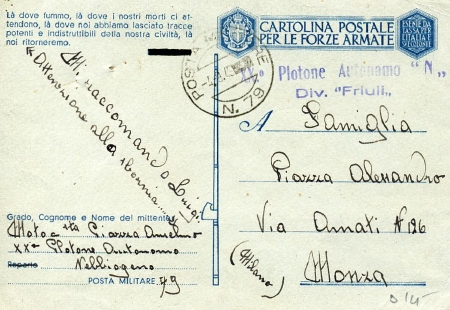 Là dove fummo, là dove i nostri morti ci at-
tendono, là dove noi abbiamo lasciato tracce
potenti e indistruttibili della nostra civiltà, là
noi ritorneremo.
CARTOLINA POSTALE
PER LE FORZE ARMATE
POSTA MILITARE
N. 79
Plotone Autonomo "N"
Div. "Friuli"
Mi raccomando Luigi
Attenzione alla
A Famiglia
Piazza Alessandro
Via Amati N 126
(Milano)
Monza
Grado, Cognome e Nome del mittente
Piazza Anselmo
XX° Plotone Autonomo
Reparto Nebbiogeno
POSTA MILITARE, 79